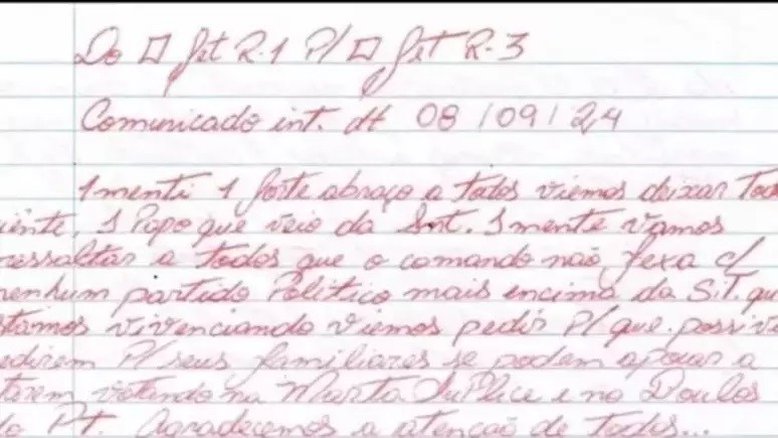 Do □ Jet R-1 P/ □ Jet R-3
Comunicado int. dt 08/09/24
1menti 1 forte abraço a todos viemos deixar Tod
iente, 1 Papo que veio da Snt. 1mente vamos
ressaltar a todos que o comando não fexa c/
nenhum partido Político mais encima da S.T. que
stamos vivenciando viemos pedir P/ que possiv
edirem P/ seus familiares se podem apoiar a
tarem votando na Marta Suplice e no Boulos
do Pt. Agradecemos a atencão de todos...